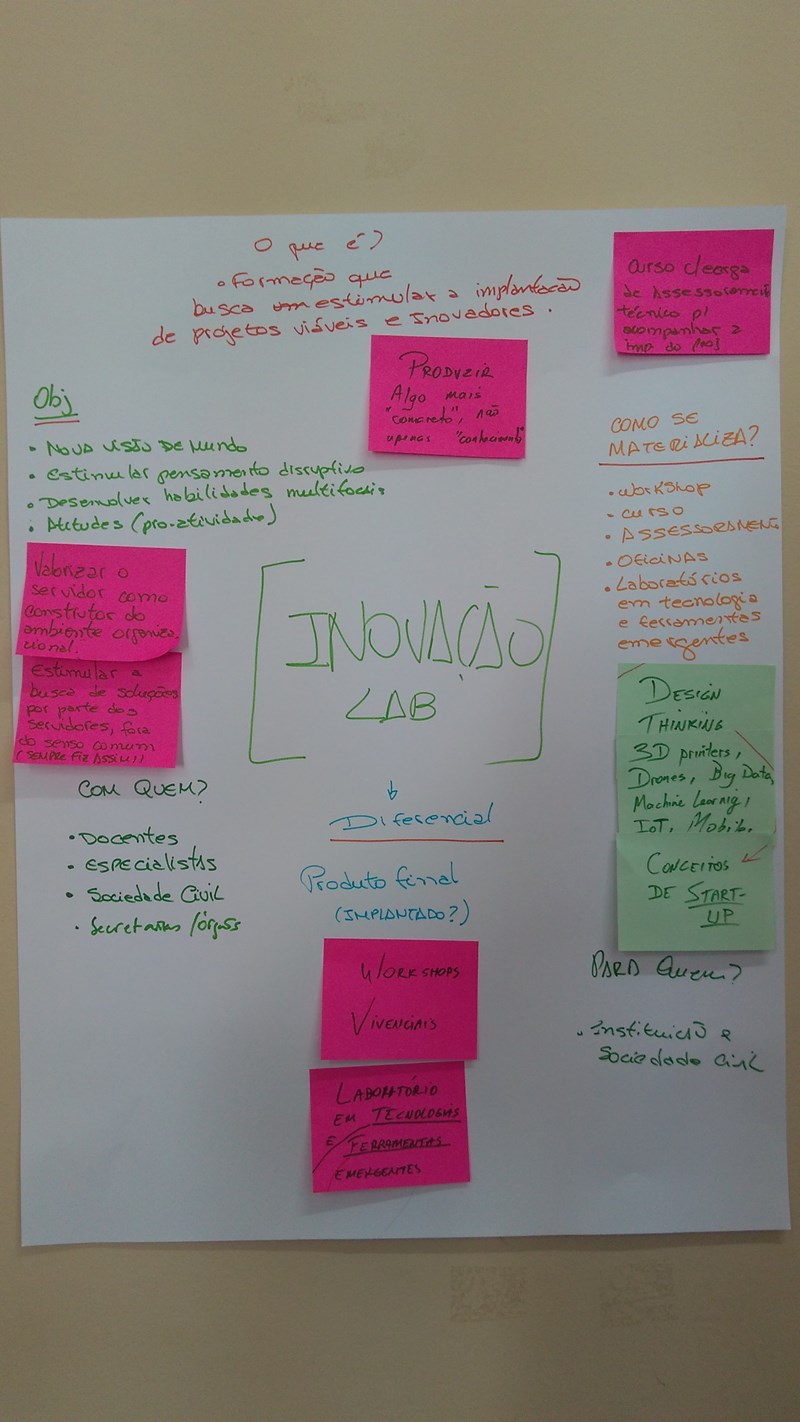 O que é?
• Formação que
busca estimular a implantação
de projetos viáveis e Inovadores.
curso c/carga
de Assessoramento
técnico p/
acompanhar a
imp do proj
PRODUZIR
Algo mais
"concreto", não
apenas "conhecimento"
Obj
• NOVA VISÃO DE MUNDO
• Estimular pensamento disruptivo
• Desenvolver habilidades multifocais
• Atitudes (pro-atividade)
Valorizar o
servidor como
construtor do
ambiente organiza-
cional.
Estimular a
busca de soluções
por parte dos
servidores, fora
do senso comum
(SEMPRE FIZ ASSIM!)
COMO SE
MATERIALIZA?
• WORKSHOP
- CURSO
• ASSESSORAMENTO
• OFICINAS
• Laboratórios
em tecnologia
e ferramentas
emergentes
[INOVAÇÃO
LAB]
DESIGN
THINKING
3D printers,
Drones, Big Data,
Machine Learnig,
IoT, Mobib.
CONCEITOS
DE START-
UP
COM QUEM?
• Docentes
• ESPECIALISTAS
• Sociedade Civil
• Secretarias /órgãos
↓
Diferencial
Produto final
(IMPLANTADO?)
WORKSHOPS
VIVENCIAIS
LABORATÓRIO
EM TECNOLOGIAS
E FERRAMENTAS
EMERGENTES
PARA Quem?
• Instituição e
Sociedade Civil